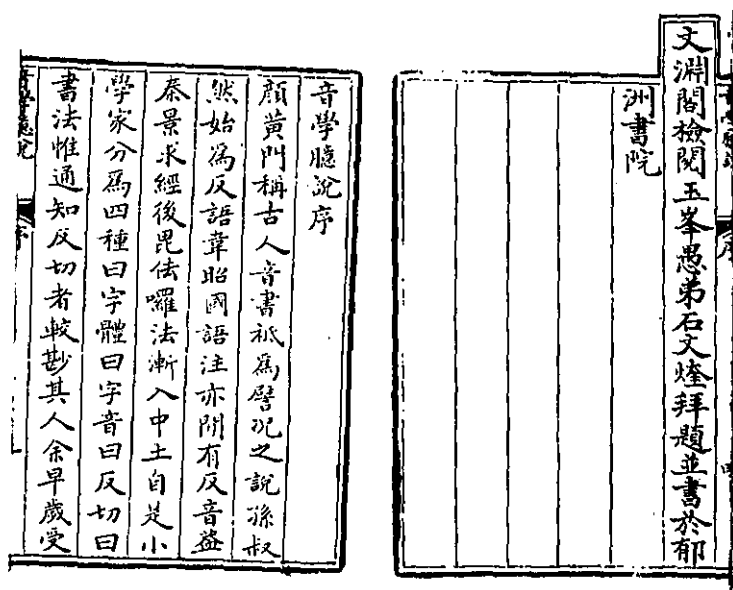 文淵閣檢閱玉峯愚弟石文煃拜題並書於郁
洲書院
音學臆說序
顏黃門稱古人音書祇爲譬況之說孫叔
然始爲反語韋昭國語注亦閒有反音益
秦景求經後毘佉囉法漸入中土自是小
學家分爲四種曰字體曰字音曰反切曰
書法惟通知反切者較尠其人余早歲受
音學臆說
序